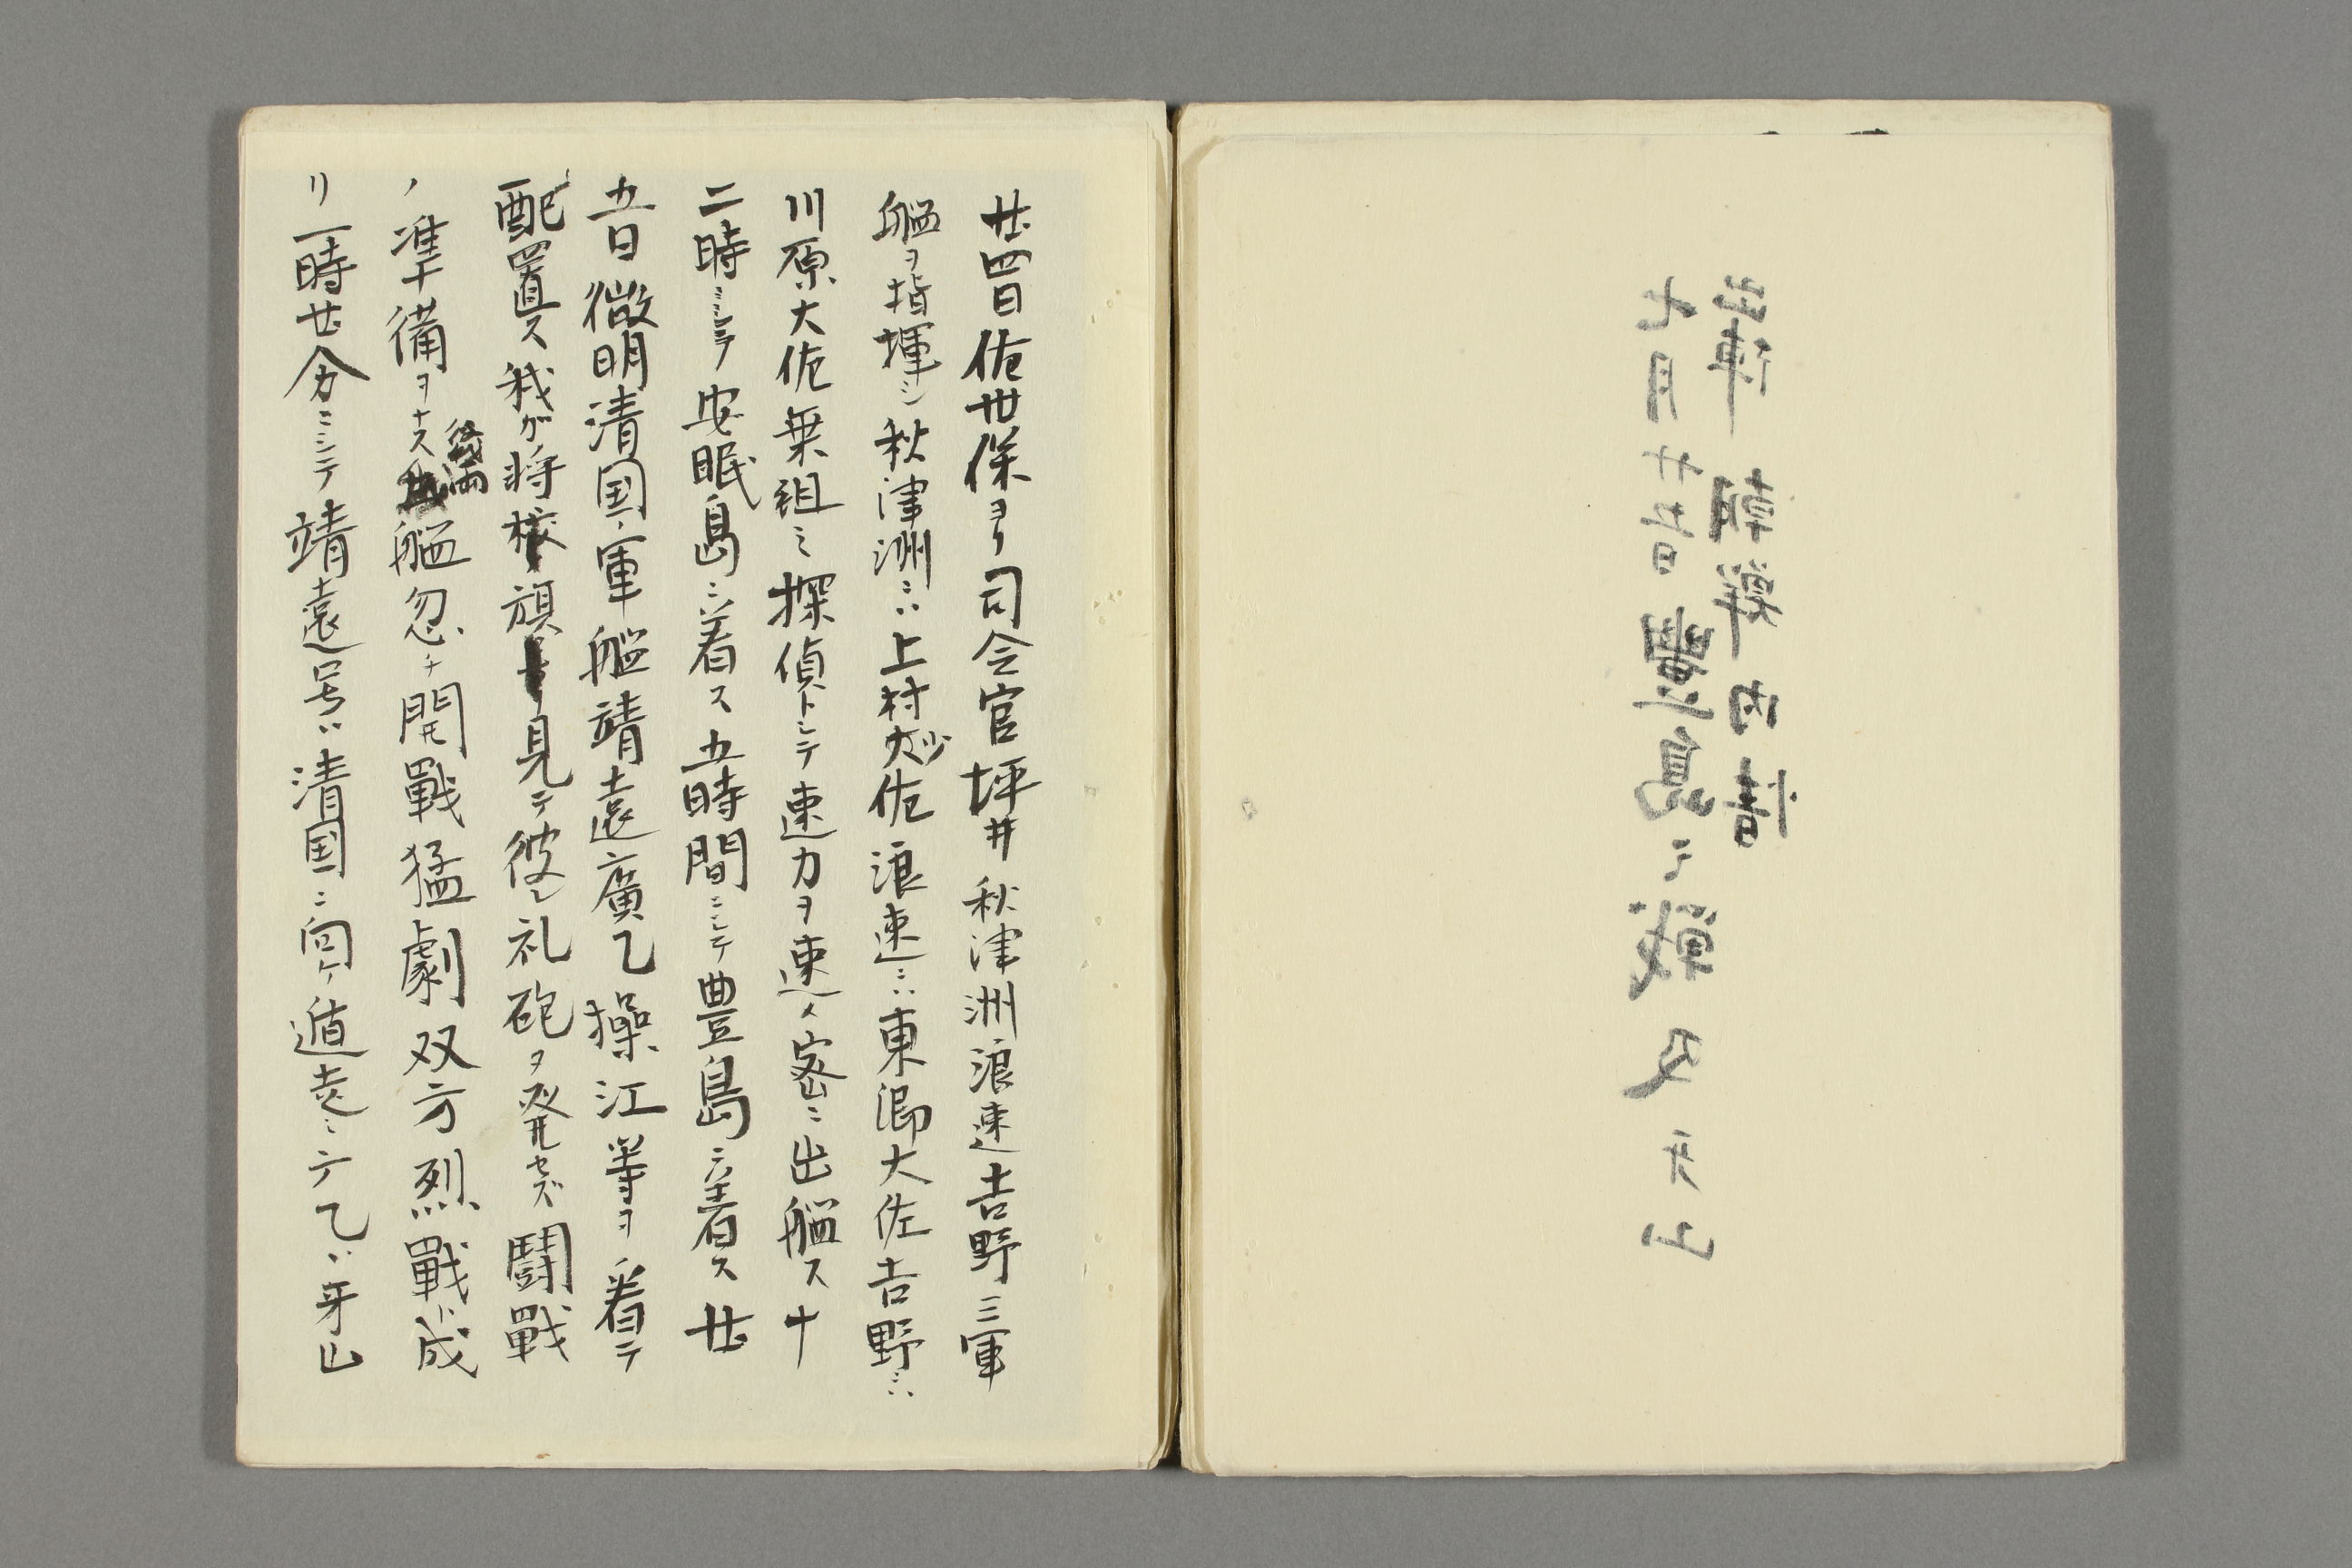 出陣 朝鮮内情
七月廿五日豊島ニ戦又牙山
廿四日佐世保ヨリ司令官坪井秋津洲浪速吉野三軍
艦ヲ指揮シ秋津洲ニハ上村少佐浪速ニハ東郷大佐吉野ニハ
川原大佐乗組ミ探偵トシテ速力ヲ速メ密ニ出艦ス十
二時ニシテ安眠島ニ着ス五時間ニシテ豊島ニ着ス廿
五日微明清国軍艦靖遠廣乙操江等ヲ看テ
配置ス我ガ将校旗ヲ見テ彼レ礼砲ヲ発セズ闘戰
ノ準備ヲナス後両艦忽チ開戰猛劇双方烈戰ト成
リ一時廿分ニシテ靖遠号ハ清国ニ向ケ遁走シ広乙ハ牙山